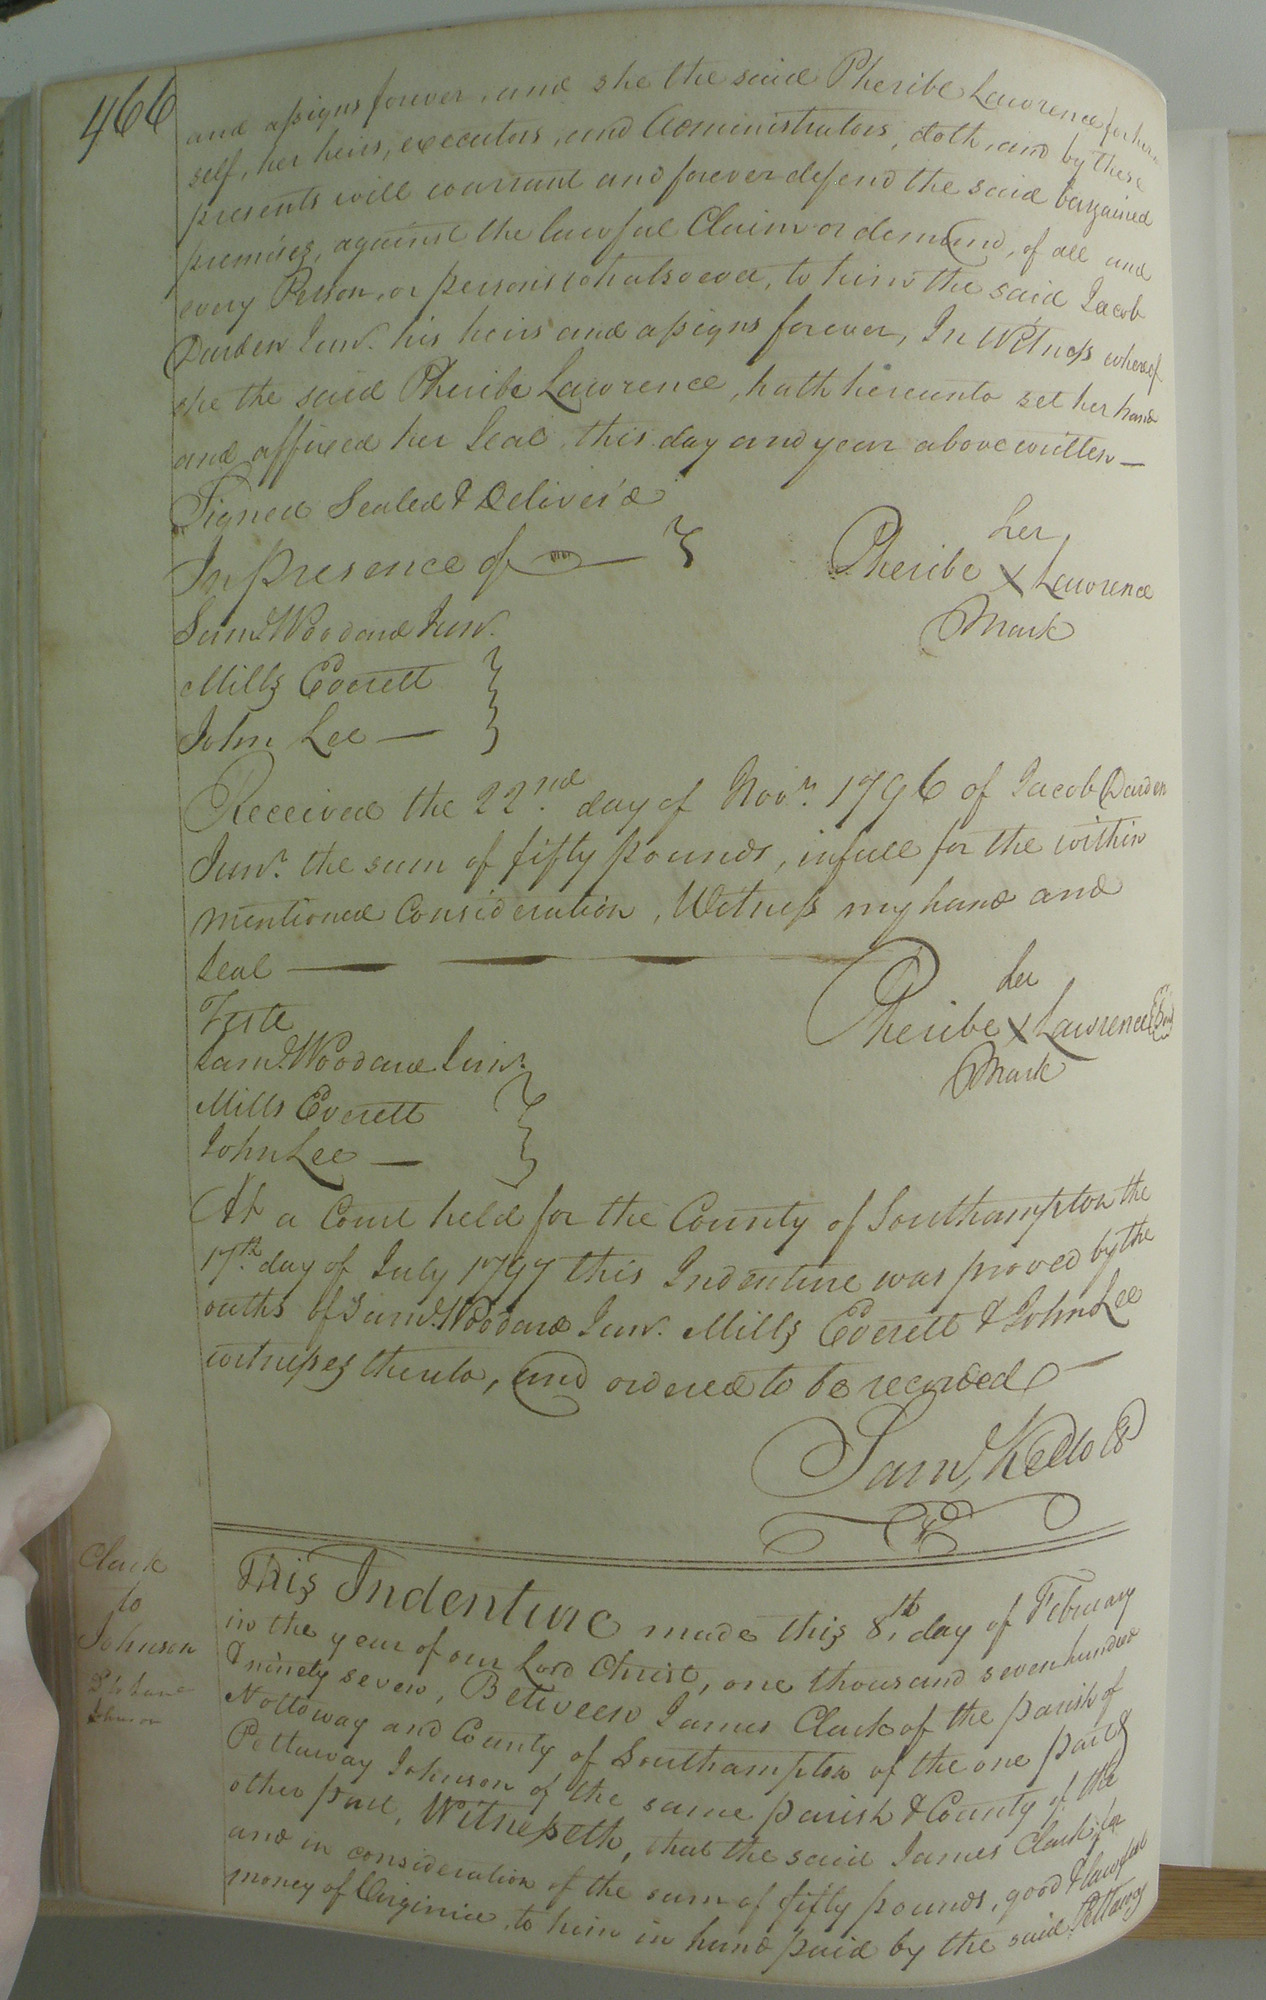 466
and assigns forever, and she the said Pheribe Lawrence for her
self, her heirs, executors, and Administrators, doth, and by these
presents will warrant and forever defend the said bargained
premises, against the lawful Claim or demand, of all and
every Person, or persons whatsoever, to him the said Jacob
Darden Junr. his heirs and assigns forever, In Witness whereof
she the said Pheribe Lawrence, hath hereunto set her hand
and affixed her Seal this day and year above written —
Signed Sealed & Deliver'd
In presence of —
her
Pheribe X Lawrence
Mark
Saml. Woodard Junr.
Mills Everett
John Lee —
Received the 22nd. day of Novr. 1796 of Jacob Darden
Junr. the sum of fifty pounds, in full for the within
mentioned Consideration, Witness my hand and
Seal —
her
Pheribe X Lawrence
Mark
Teste
Saml. Woodard Junr.
Mills Everett
John Lee —
At a Court held for the County of Southampton the
17th. day of July 1797 this Indenture was proved by the
oaths of Saml. Woodard Junr. Mills Everett & John Lee
witnesses thereto, and ordered to be recorded —
Saml. Kello
Clark
to
Johnson
This Indenture made this 8th. day of February
in the year of our Lord Christ, one thousand seven hundred
& ninety seven, Between James Clark of the parish of
Nottoway and County of Southampton of the one part &
Pettaway Johnson of the same parish & County of the
other part, Witnesseth, that the said James Clark for
and in consideration of the sum of fifty pounds, good & lawful
money of Virginia, to him in hand paid by the said Pettaway